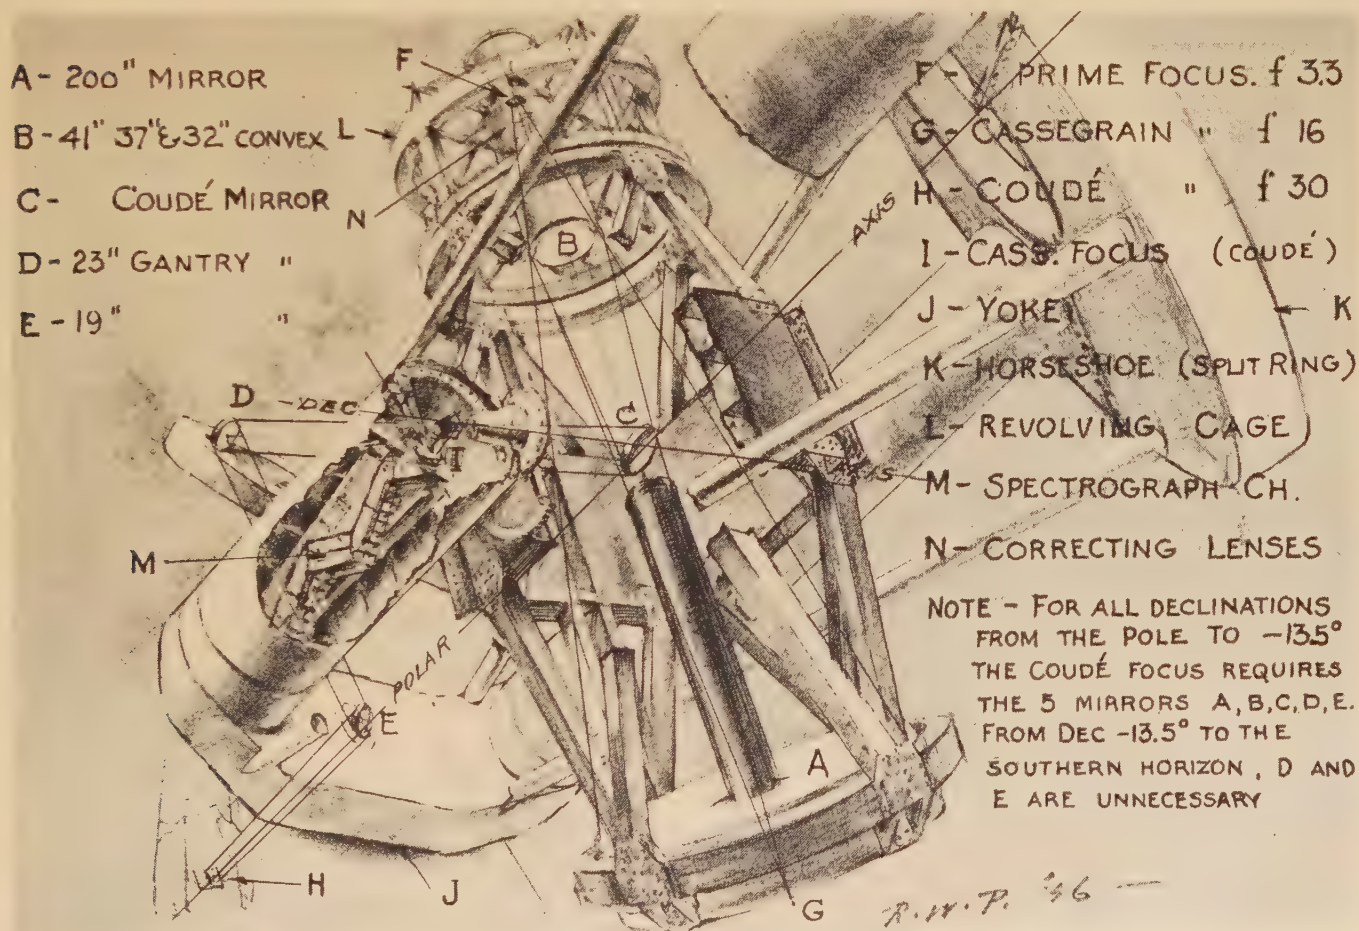 A - 200" MIRROR
B - 41" 37" & 32" CONVEX
C - COUDÉ MIRROR
D - 23" GANTRY "
E - 19" "
F
L
N
B
D - DEC
C
I
AXIS
AXIS
M
POLAR
E
A
H
J
G
K
F - PRIME FOCUS. f 3.3
G - CASSEGRAIN " f 16
H - COUDÉ " f 30
I - CASS. FOCUS (COUDÉ)
J - YOKE
K - HORSESHOE (SPLIT RING)
L - REVOLVING CAGE
M - SPECTROGRAPH CH.
N - CORRECTING LENSES
NOTE - FOR ALL DECLINATIONS
FROM THE POLE TO -13.5°
THE COUDÉ FOCUS REQUIRES
THE 5 MIRRORS A, B, C, D, E.
FROM DEC -13.5° TO THE
SOUTHERN HORIZON, D AND
E ARE UNNECESSARY
R.W.P. '46